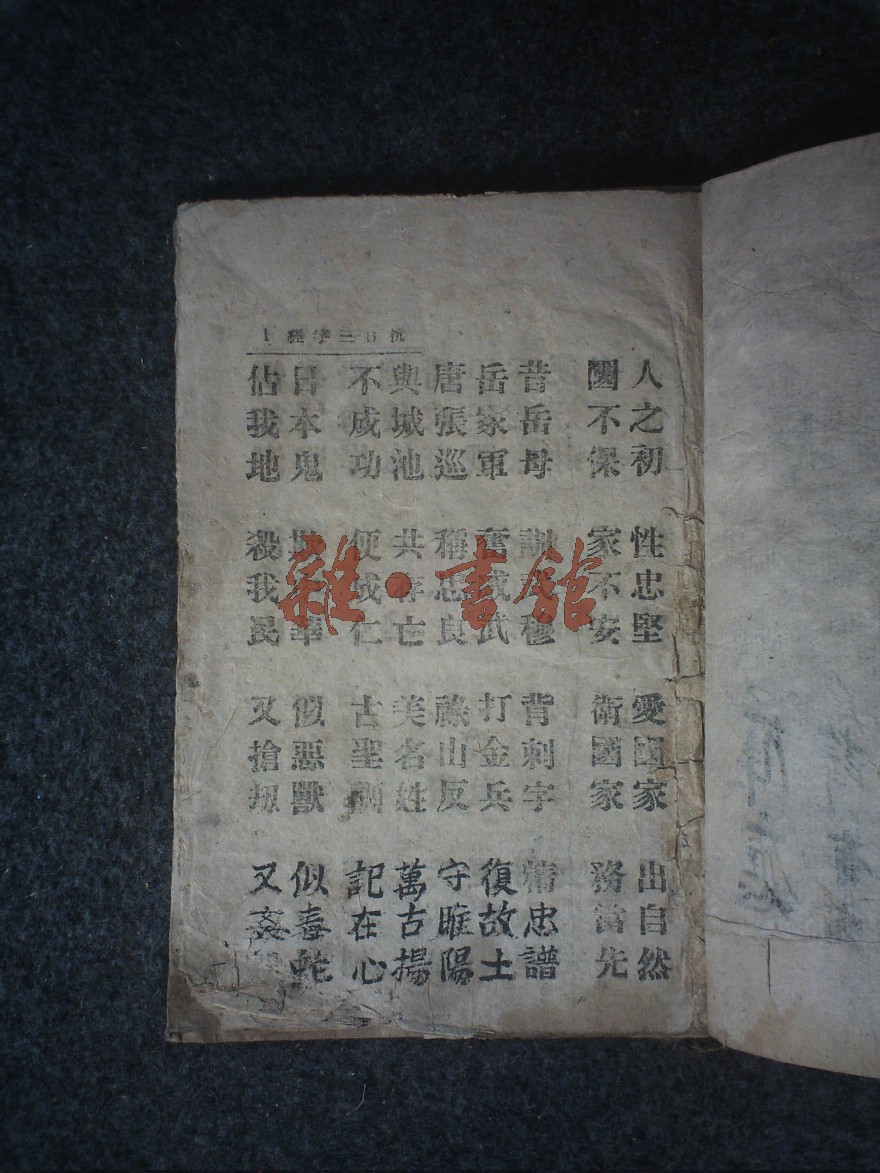 抗日三字經 1
人之初 性忠堅 愛國家 出自然
國不保 家不安 衛國家 務當先
昔岳母 訓 背刺字 精忠譜
岳家軍 奮威武 打金兵 復故土
唐張巡 稱忠良 祿山反 守睢陽
與城池 共存亡 美名姓 萬古揚
不成功 便成仁 古聖訓 記在心
日本鬼 華 似惡獸 似毒蛇
佔我地 殺我民 又搶刼 又姦
雜·書館